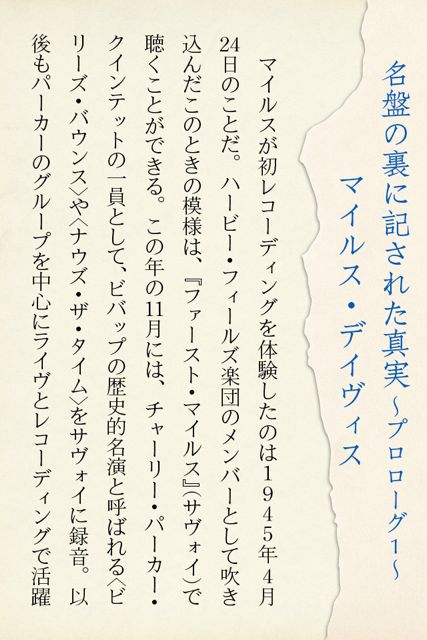 名盤の裏に記された真実～プロローグ1～
マイルス・デイヴィス
マイルスが初レコーディングを体験したのは1945年4月
24日のことだ。ハービー・フィールズ楽団のメンバーとして吹き
込んだこのときの模様は、『ファースト・マイルス』(サヴォイ)で
聴くことができる。この年の11月には、チャーリー・パーカー・
クインテットの一員として、ビバップの歴史的名演と呼ばれる〈ビ
リーズ・バウンス〉や〈ナウズ・ザ・タイム〉をサヴォイに録音。以
後もパーカーのグループを中心にライヴとレコーディングで活躍